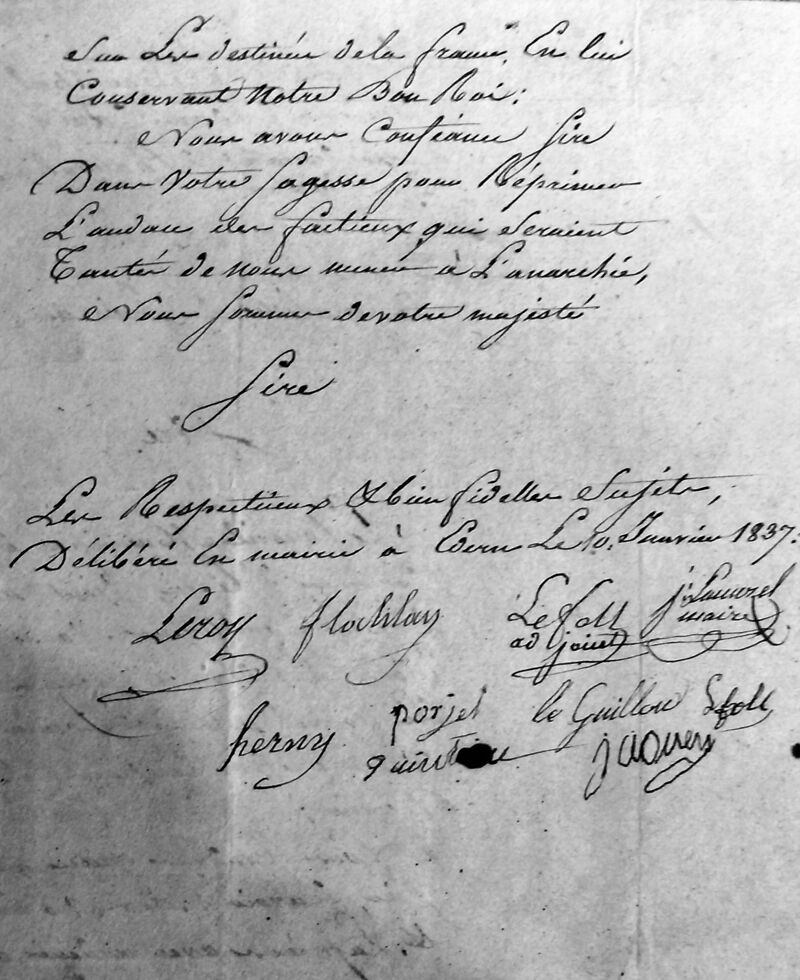 Sur Les destinée de la france, En lui
Conservant Notre Bon Roi;
Nous avons Conféance Sire
Dans Votre Sagesse pour Réprimer
L'audace des factieux qui Seraient
Tantés de nous mener à L'anarchie,
Nous Sommes de votre majesté
Sire
Les Respectueux & bien fidelles Sujéts,
Délibéré En mairie à Edern Le 10. Janvier 1837.
Leroy flochlay Le foll
adjoint maire
herny porjet le Guillou Lefoll
jaouen